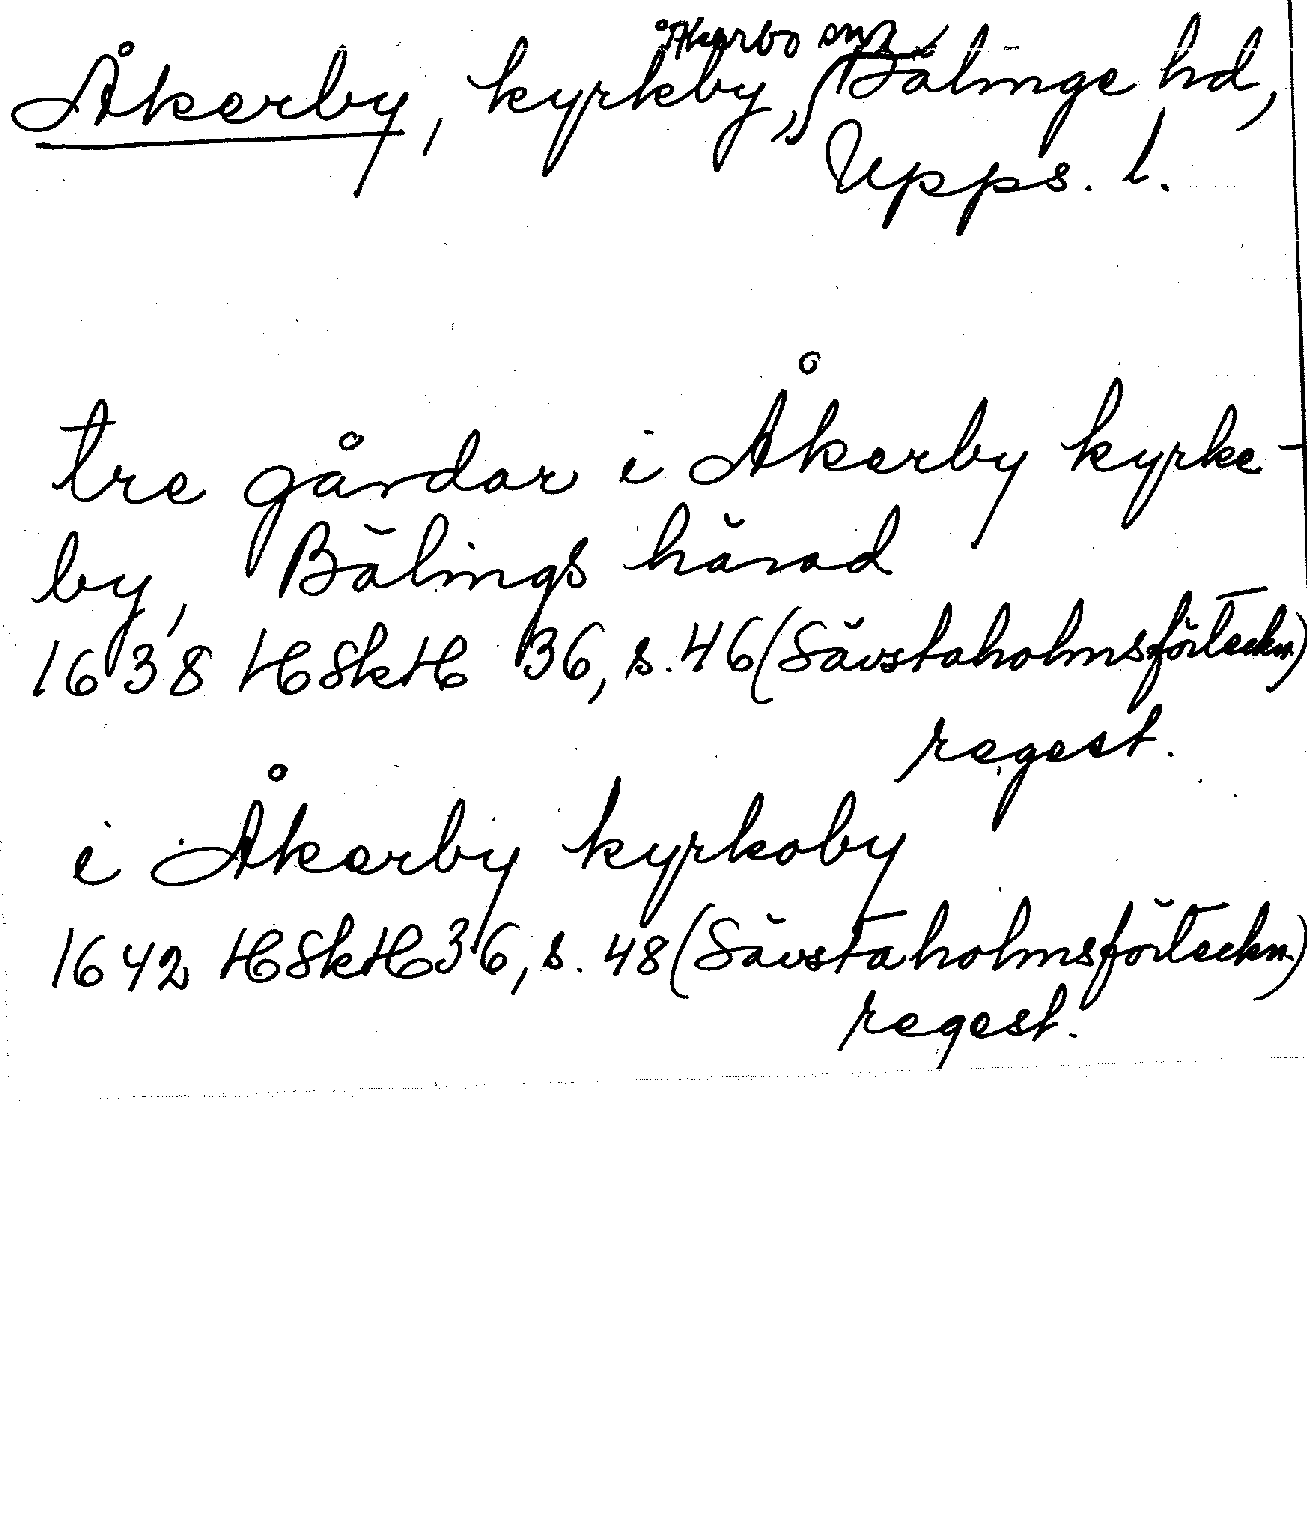 Åkerby, kyrkby, Åkerbo sn, Bälinge hd,
Upps. l.
tre gårdar i Åkerby kyrke-
by, Bälings härad
1638 HSkH 36, s. 46 (Sävstaholmsförteckn.)
regest.
i Åkerby kyrkoby
1642 HSkH 36, s. 48 (Sävstaholmsförteckn.)
regest.